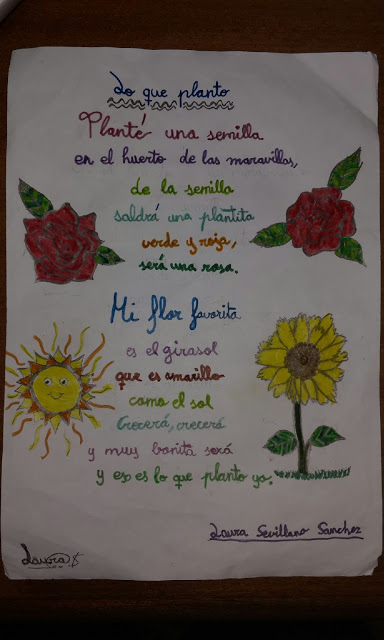 Lo que planto
Planté una semilla
en el huerto de las maravillas,
de la semilla
saldrá una plantita
verde y roja,
será una rosa.
Mi flor favorita
es el girasol
que es amarillo
como el sol
Crecerá, crecerá
y muy bonita será
y eso es lo que planto yo.
Laura Sevillano Sanchez
Laura